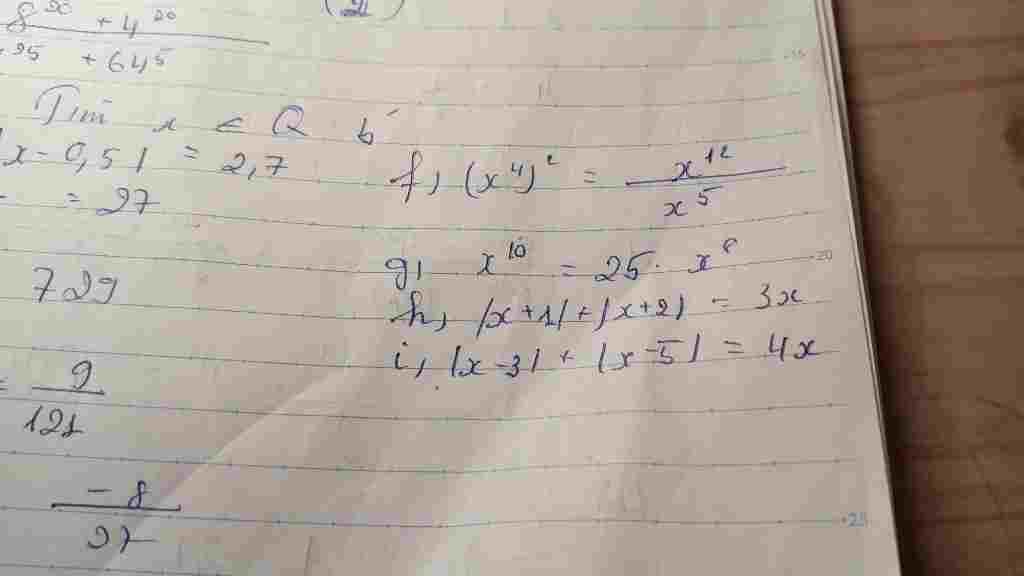 8²⁰ + 4²⁰
²⁵ + 64⁵
Tìm x ∈ Q b'
x - 0,5| = 2,7
= 27
729
= 9
121
- 8
27
f, (x⁴)² = x¹² / x⁵
g, x¹⁰ = 25. x⁸
h, |x+1|+|x+2| = 3x
i, |x-3| + |x-5| = 4x
20
25